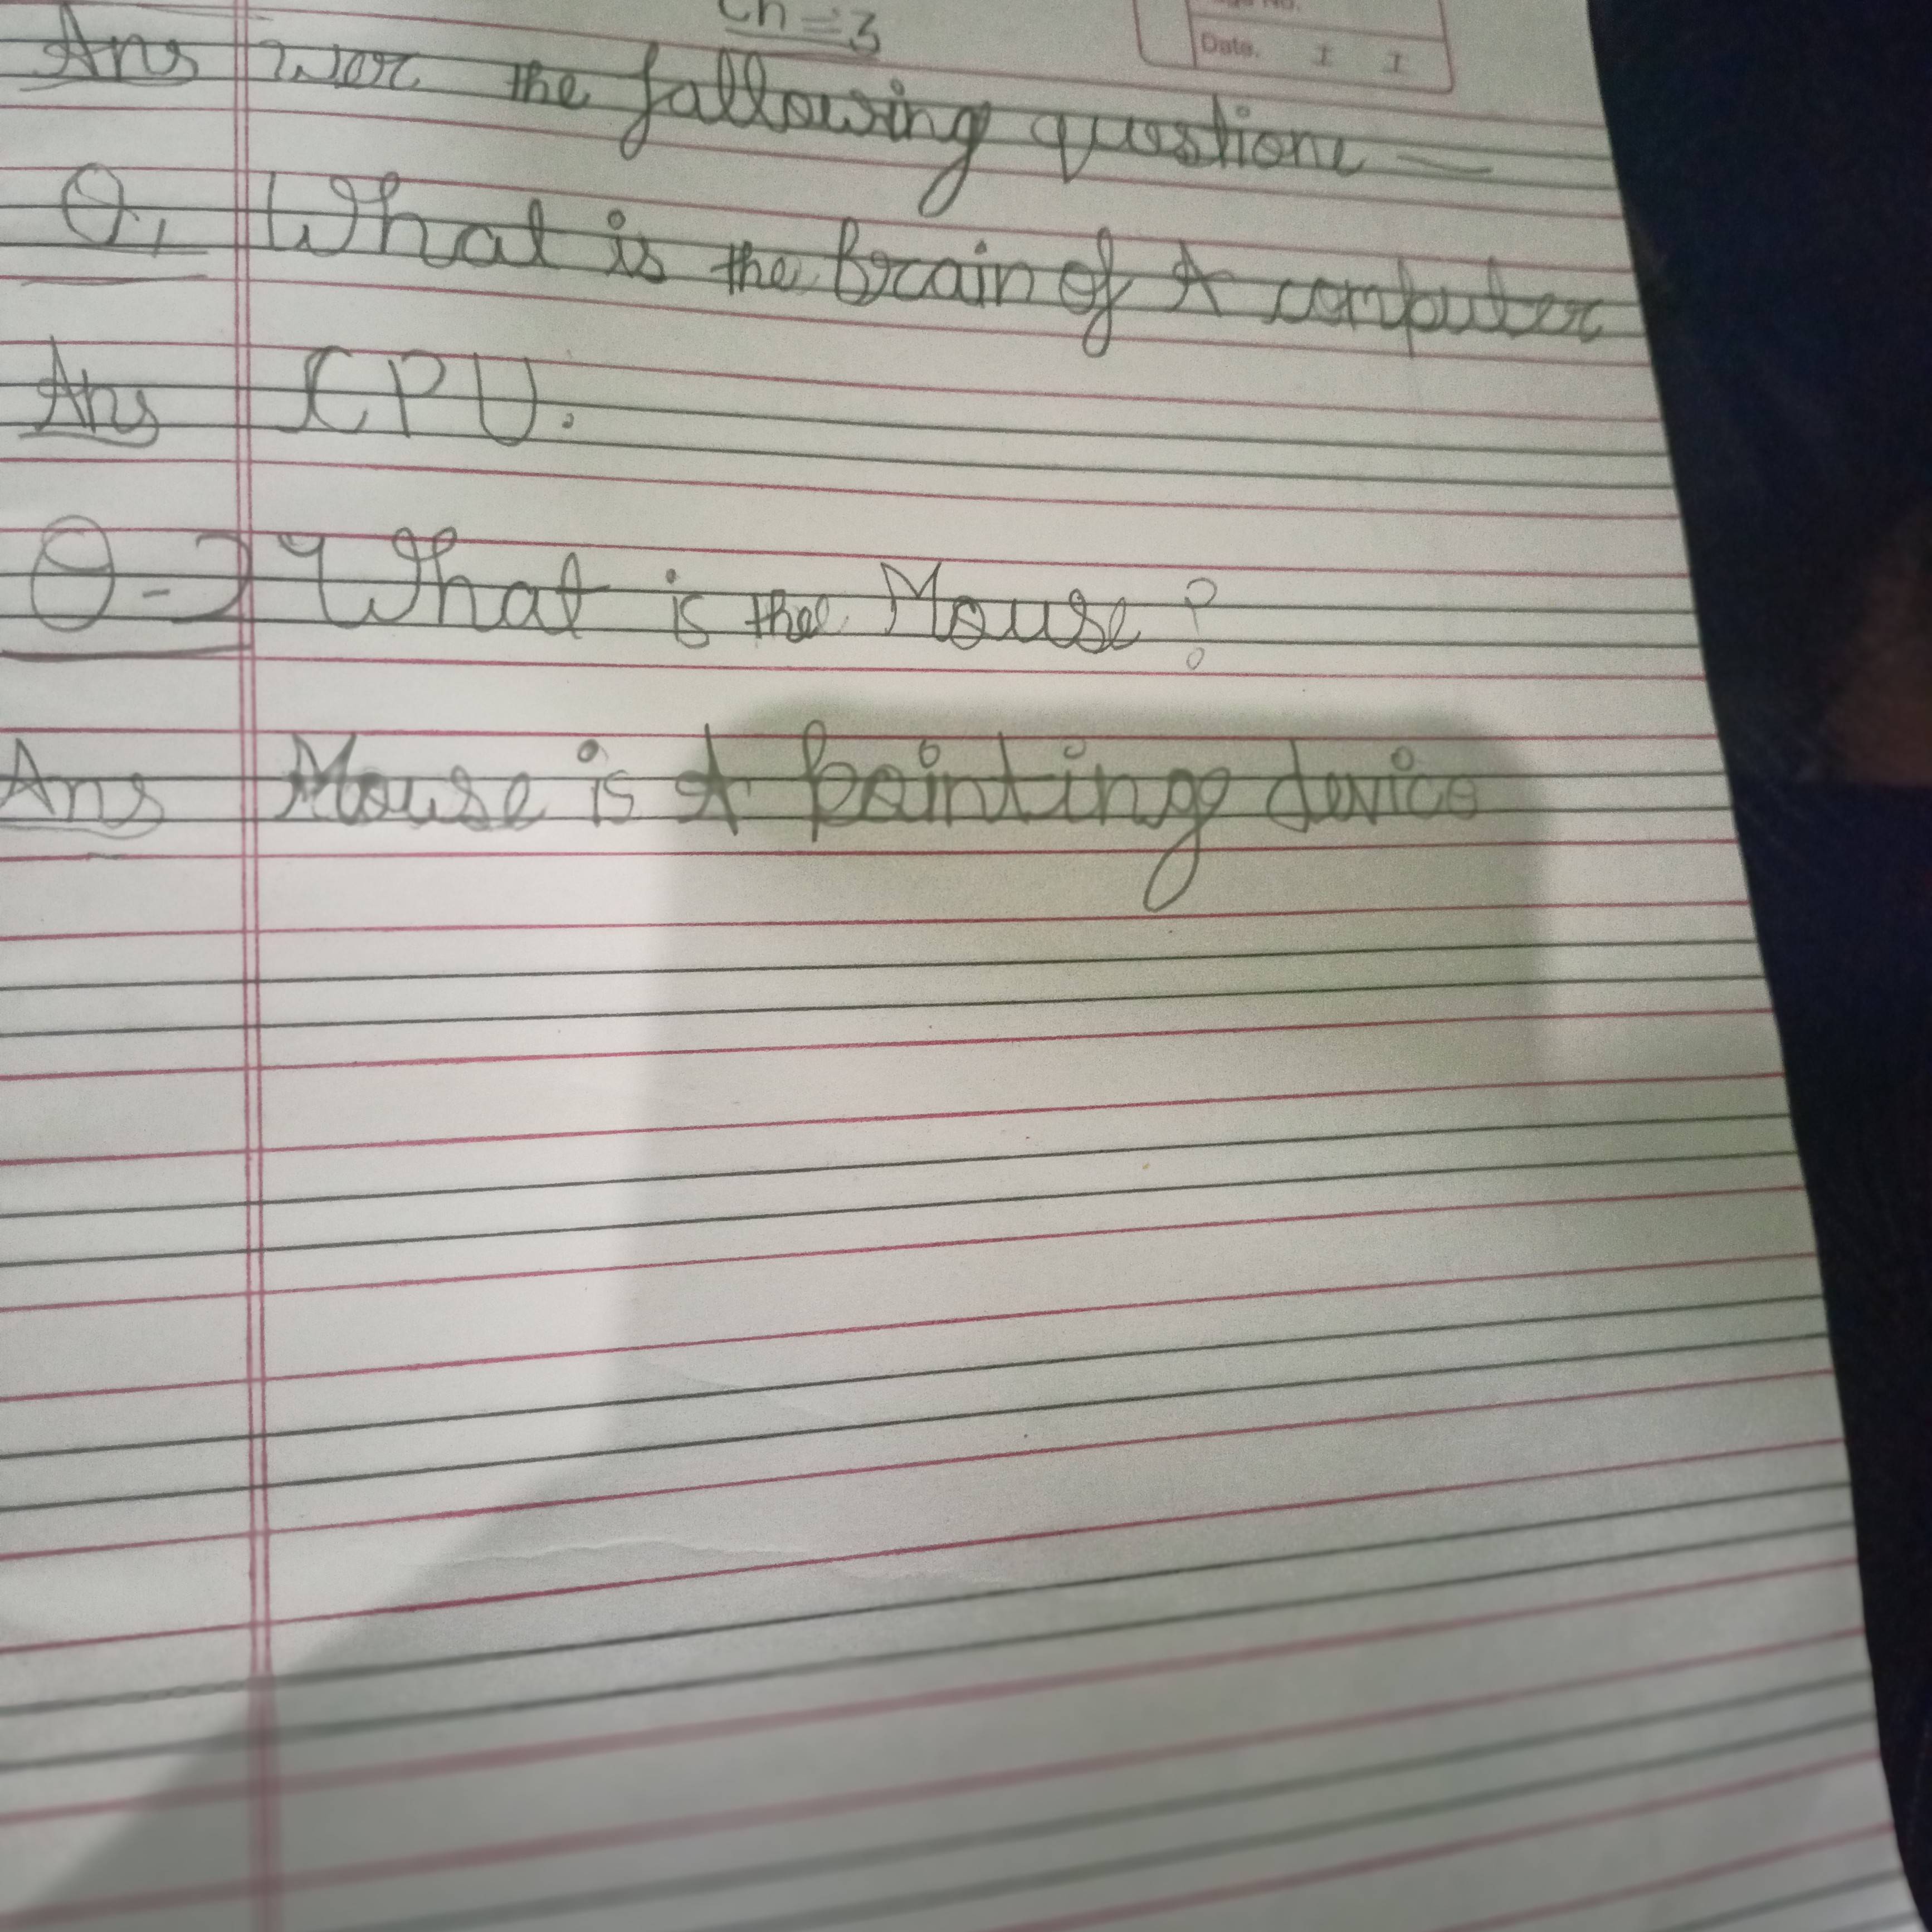 Ch = 3
Date.
Ans wer the fallowing questione —
Q, What is the Brain of A computer
Ans CPU.
Q-2 What is the Mouse?
Ans Mouse is A pointing device